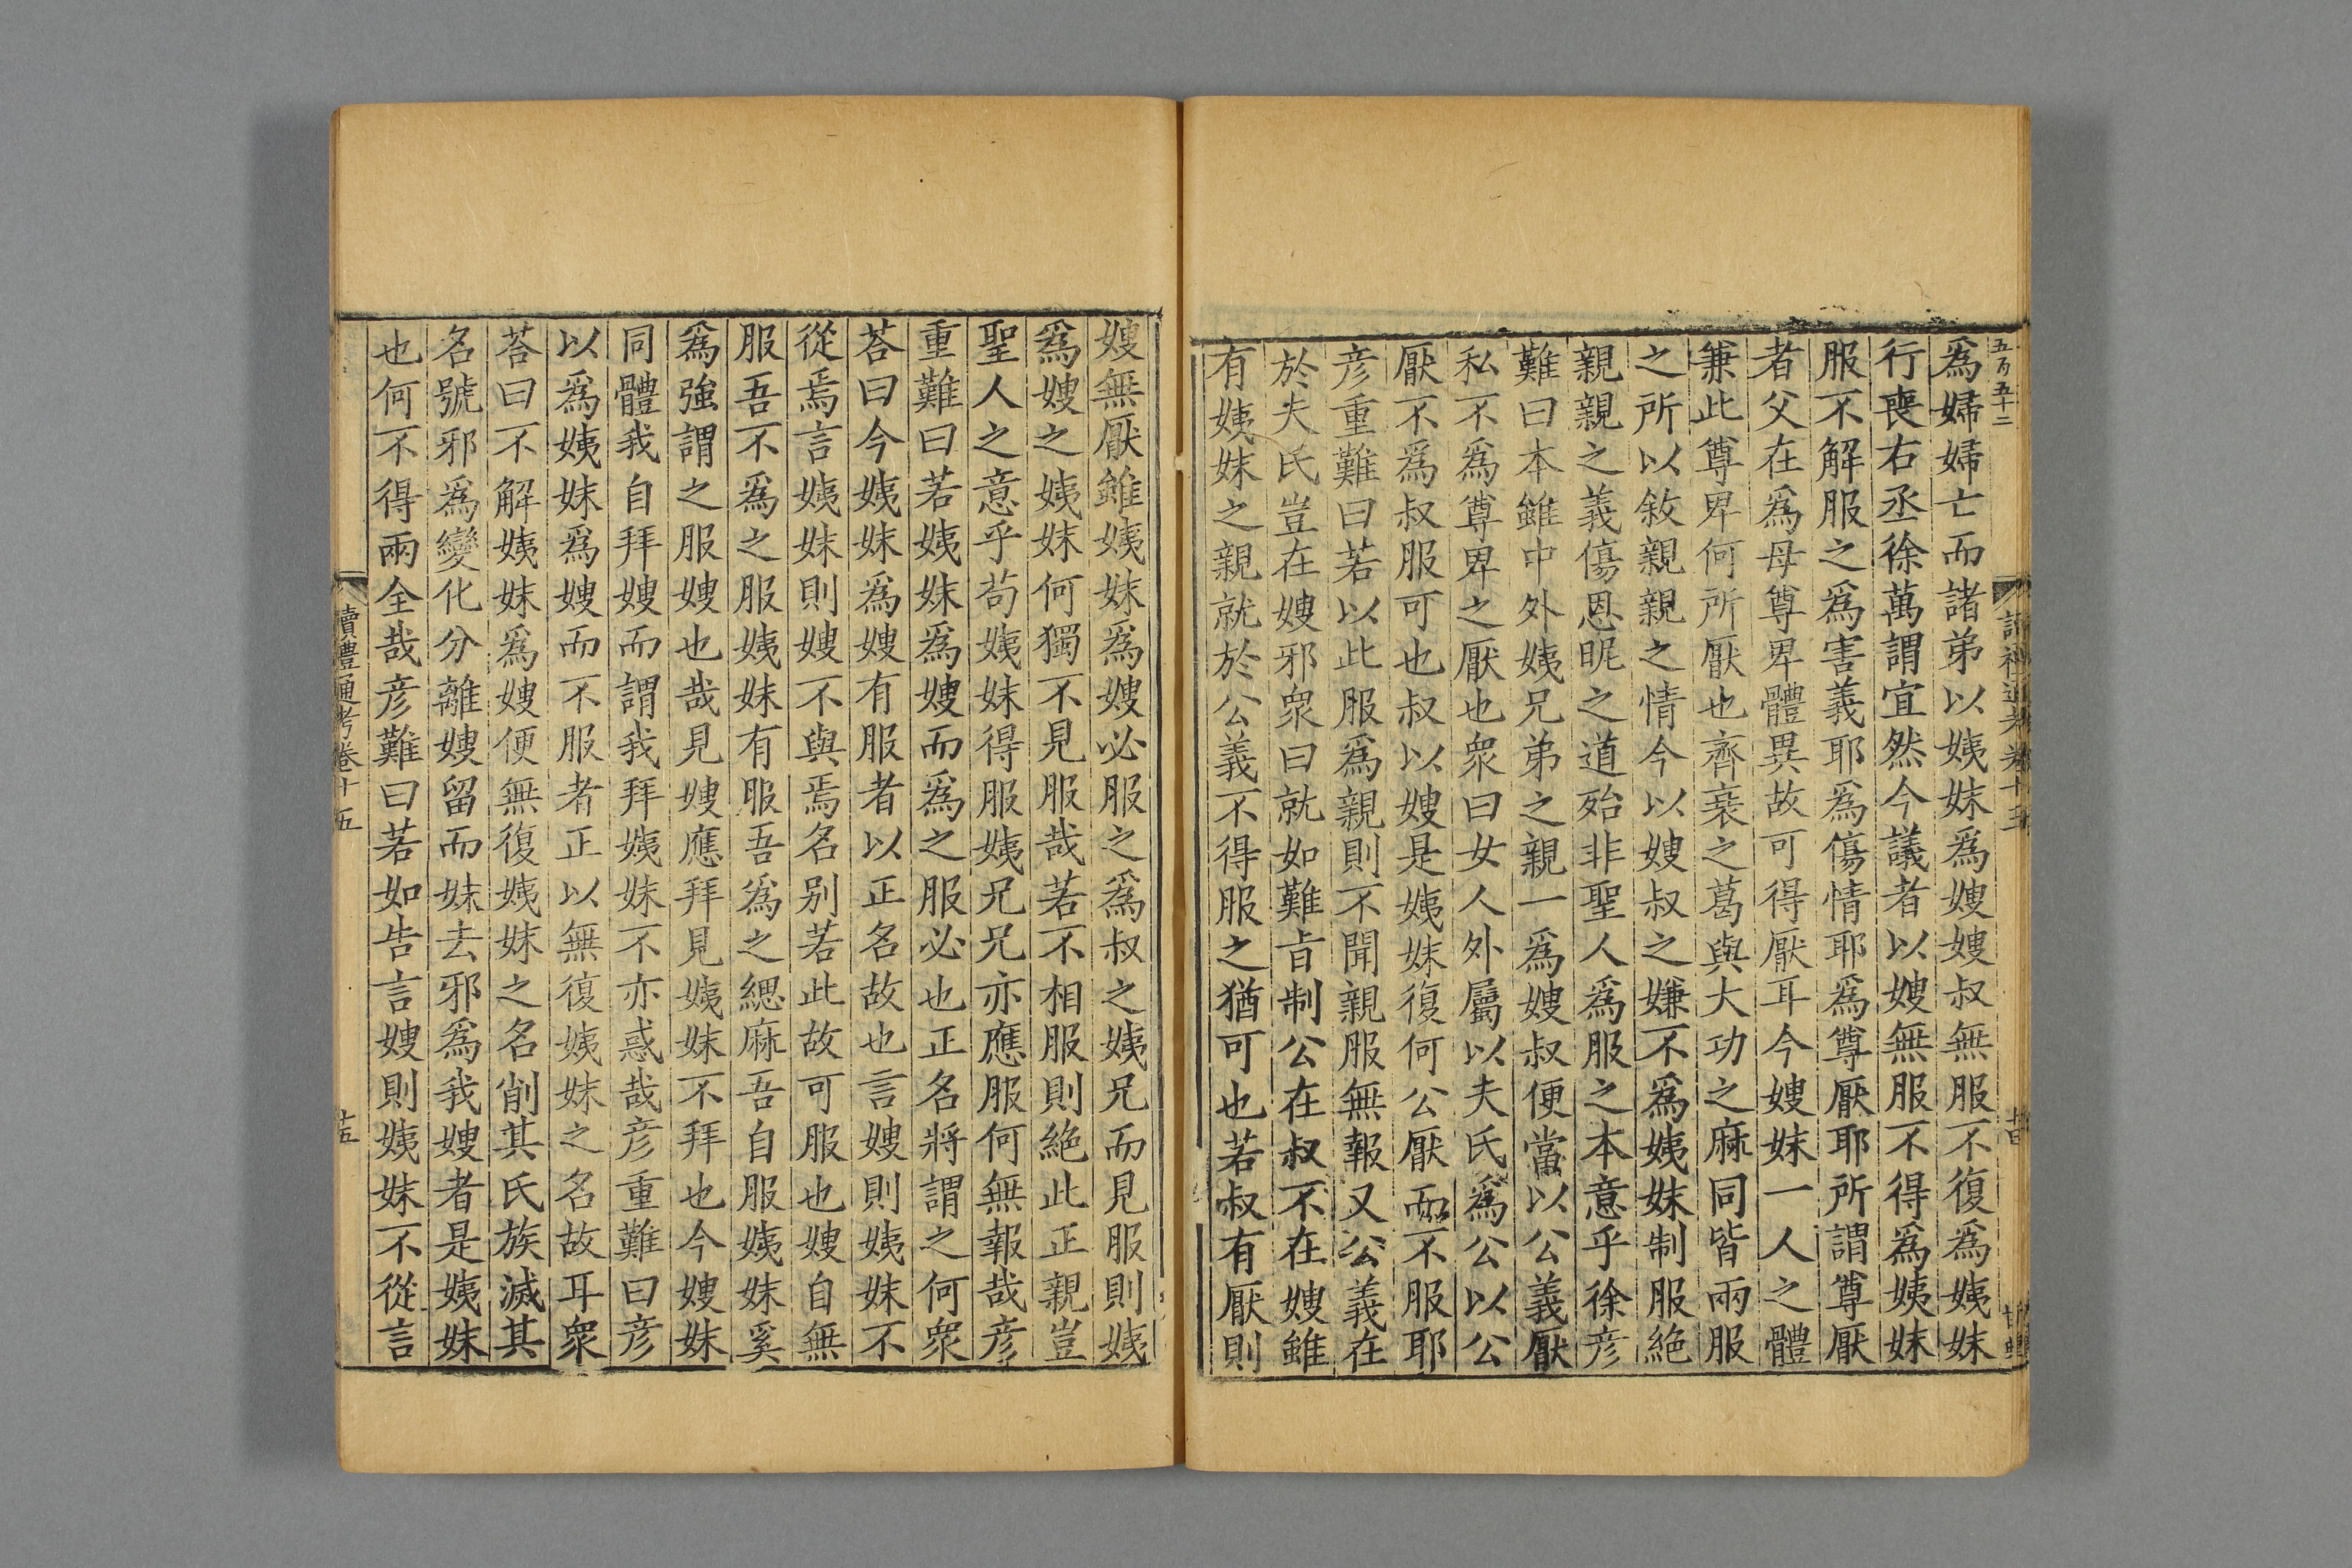 五百五十二
爲婦婦亡而諸弟以姨妹爲嫂嫂叔無服不復爲姨妹
行喪右丞徐萬謂宜然今議者以嫂無服不得爲姨妹
服不解服之爲害義耶爲傷情耶爲尊厭耶所謂尊厭
者父在爲母尊卑體異故可得厭耳今嫂妹一人之體
兼此尊卑何所厭也齊衰之葛與大功之麻同皆兩服
之所以敘親親之情今以嫂叔之嫌不爲姨妹制服絶
親親之義傷恩昵之道殆非聖人爲服之本意乎徐彦
難曰本雖中外姨兄弟之親一爲嫂叔便當以公義厭
私不爲尊卑之厭也衆曰女人外屬以夫氏爲公以公
厭不爲叔服可也叔以嫂是姨妹復何公厭而不服耶
彦重難曰若以此服爲親則不聞親服無報又公義在
於夫氏豈在嫂邪衆曰就如難旨制公在叔不在嫂雖
有姨妹之親就於公義不得服之猶可也若叔有厭則
嫂無厭雖姨妹爲嫂必服之爲叔之姨兄而見服則姨
爲嫂之姨妹何獨不見服哉若不相服則絶此正親豈
聖人之意乎苟姨妹得服姨兄兄亦應服何無報哉彦
重難曰若姨妹爲嫂而爲之服必也正名將謂之何衆
荅曰今姨妹爲嫂有服者以正名故也言嫂則姨妹不
從焉言姨妹則嫂不與焉名别若此故可服也嫂自無
服吾不爲之服姨妹有服吾爲之緦麻吾自服姨妹奚
爲強謂之服嫂也哉見嫂應拜見姨妹不拜也今嫂妹
同體我自拜嫂而謂我拜姨妹不亦惑哉彦重難曰彦
以爲姨妹爲嫂而不服者正以無復姨妹之名故耳衆
荅曰不解姨妹爲嫂便無復姨妹之名削其氏族滅其
名號邪爲變化分離嫂留而妹去邪爲我嫂者是姨妹
也何不得兩全哉彦難曰若如告言嫂則姨妹不從言
讀禮通考卷十五
十五